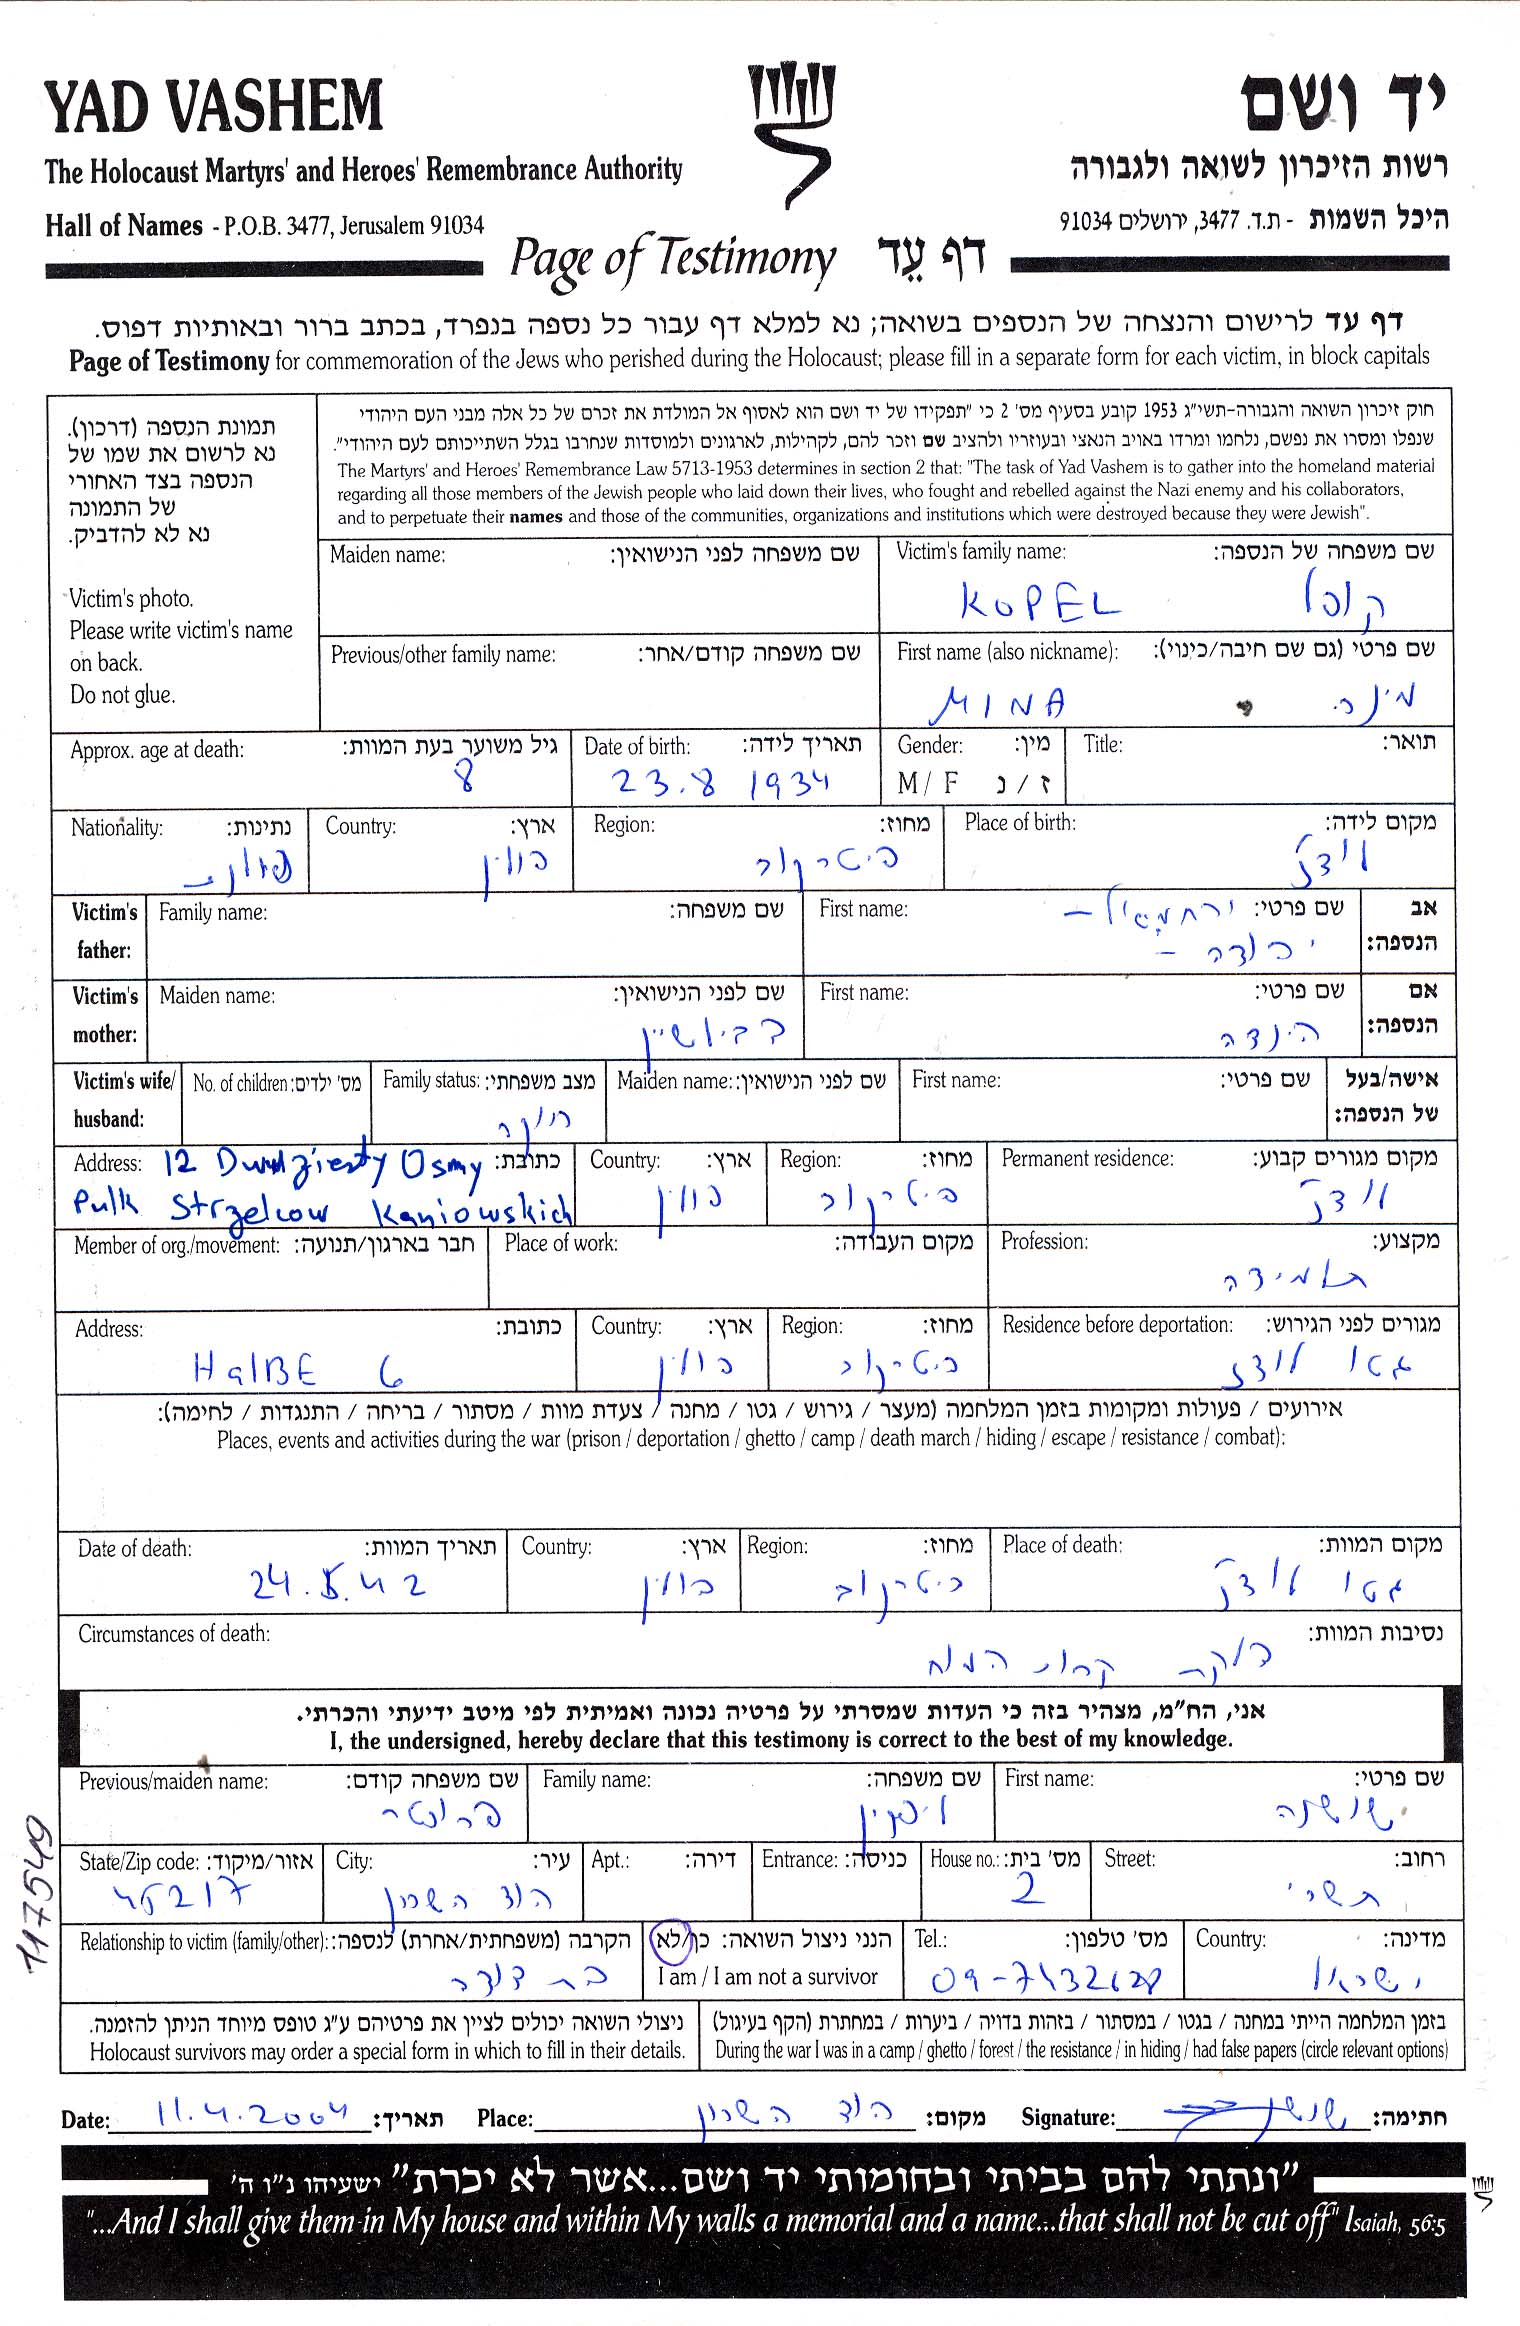 YAD VASHEM
יד ושם
The Holocaust Martyrs' and Heroes' Remembrance Authority
רשות הזיכרון לשואה ולגבורה
Hall of Names - P.O.B. 3477, Jerusalem 91034
היכל השמות - ת.ד. 3477, ירושלים 91034
Page of Testimony דף עֵד
דף עד לרישום והנצחה של הנספים בשואה; נא למלא דף עבור כל נספה בנפרד, בכתב ברור ובאותיות דפוס.
Page of Testimony for commemoration of the Jews who perished during the Holocaust; please fill in a separate form for each victim, in block capitals
תמונת הנספה (דרכון).
נא לרשום את שמו של
הנספה בצד האחורי
של התמונה
נא לא להדביק.
Victim's photo.
Please write victim's name
on back.
Do not glue.
חוק זיכרון השואה והגבורה-תשי"ג 1953 קובע בסעיף מס' 2 כי "תפקידו של יד ושם הוא לאסוף אל המולדת את זכרם של כל אלה מבני העם היהודי
שנפלו ומסרו את נפשם, נלחמו ומרדו באויב הנאצי ובעוזריו ולהציב שם וזכר להם, לקהילות, לארגונים ולמוסדות שנחרבו בגלל השתייכותם לעם היהודי".
The Martyrs' and Heroes' Remembrance Law 5713-1953 determines in section 2 that: "The task of Yad Vashem is to gather into the homeland material
regarding all those members of the Jewish people who laid down their lives, who fought and rebelled against the Nazi enemy and his collaborators,
and to perpetuate their names and those of the communities, organizations and institutions which were destroyed because they were Jewish".
Maiden name: שם משפחה לפני הנישואין:
Victim's family name: שם משפחה של הנספה:
KOPEL קופל
Previous/other family name: שם משפחה קודם/אחר:
First name (also nickname): שם פרטי (גם שם חיבה/כינוי):
MINA מינה
Approx. age at death: גיל משוער בעת המוות:
8
Date of birth: תאריך לידה:
23.8 1934
Gender: מין:
M / F ז / נ
Title: תואר:
Nationality: נתינות:
פולנית
Country: ארץ:
פולין
Region: מחוז:
פיטרקוב
Place of birth: מקום לידה:
לודז'
Victim's father:
Family name: שם משפחה:
First name: שם פרטי: ירחמיאל -
יהודה -
אב הנספה:
Victim's mother:
Maiden name: שם לפני הנישואין:
First name: שם פרטי:
הינדה
אם הנספה:
Victim's wife/ husband:
No. of children: מס' ילדים:
Family status: מצב משפחתי:
רווקה
Maiden name: שם לפני הנישואין:
First name: שם פרטי:
אישה/בעל של הנספה:
Address: 12 Dwudziesty Osmy כתובת:
Pulk Strzelcow Kaniowskich
Country: ארץ:
פולין
Region: מחוז:
פיטרקוב
Permanent residence: מקום מגורים קבוע:
לודז'
Member of org./movement: חבר בארגון/תנועה:
Place of work: מקום העבודה:
Profession: מקצוע:
תלמידה
Address: כתובת:
HalBE 6
Country: ארץ:
פולין
Region: מחוז:
פיטרקוב
Residence before deportation: מגורים לפני הגירוש:
גטו לודז
אירועים / פעולות ומקומות בזמן המלחמה (מעצר / גירוש / גטו / מחנה / צעדת מוות / מסתור / בריחה / התנגדות / לחימה):
Places, events and activities during the war (prison / deportation / ghetto / camp / death march / hiding / escape / resistance / combat):
Date of death: תאריך המוות:
24.5.42
Country: ארץ:
פולין
Region: מחוז:
פיטרקוב
Place of death: מקום המוות:
גטו לודז'
Circumstances of death: נסיבות המוות:
דלקת קרום המוח
אני, הח"מ, מצהיר בזה כי העדות שמסרתי על פרטיה נכונה ואמיתית לפי מיטב ידיעתי והכרתי.
I, the undersigned, hereby declare that this testimony is correct to the best of my knowledge.
Previous/maiden name: שם משפחה קודם:
Family name: שם משפחה:
ליפקין
First name: שם פרטי:
שושנה
State/Zip code: אזור/מיקוד:
45217
City: עיר:
הוד השרון
Apt.: דירה:
Entrance: כניסה:
House no.: מס' בית:
2
Street: רחוב:
תשרי
Relationship to victim (family/other): הקרבה (משפחתית/אחרת) לנספה:
בת דודה
הנני ניצול השואה: כן/לא
I am / I am not a survivor
Tel.: מס' טלפון:
Country: מדינה:
ישראל
ניצולי השואה יכולים לציין את פרטיהם ע"ג טופס מיוחד הניתן להזמנה.
Holocaust survivors may order a special form in which to fill in their details.
בזמן המלחמה הייתי במחנה / בגטו / במסתור / בזהות בדויה / ביערות / במחתרת (הקף בעיגול)
During the war I was in a camp / ghetto / forest / the resistance / in hiding / had false papers (circle relevant options)
Date: 11.4.2004 תאריך: Place: הוד השרון מקום: Signature: חתימה:
"ונתתי להם בביתי ובחומותי יד ושם...אשר לא יכרת" ישעיהו נ"ו ה'
"...And I shall give them in My house and within My walls a memorial and a name...that shall not be cut off" Isaiah, 56:5
117549